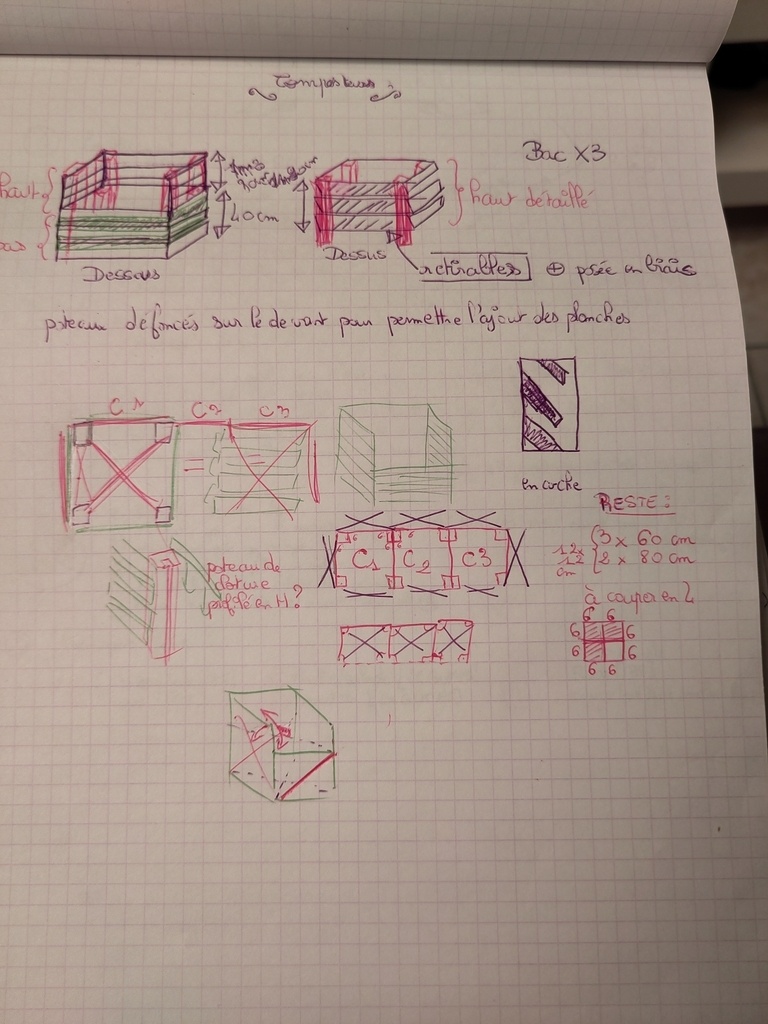 Composteurs :
Bac X3
haut
40cm
haut détaillé
Dessous
Dessus
retirables ⊕ posée en biais
poteau défoncés sur le devant pour permettre l'ajout des planches
C1 C2 C3
en coche
RESTE :
3 x 60 cm
2 x 80 cm
12x
12
cm
à couper en 2
C1 C2 C3
6 6
6 6
poteau de
cloture
profilé en H ?
6 6
6 6
6 6
6 6